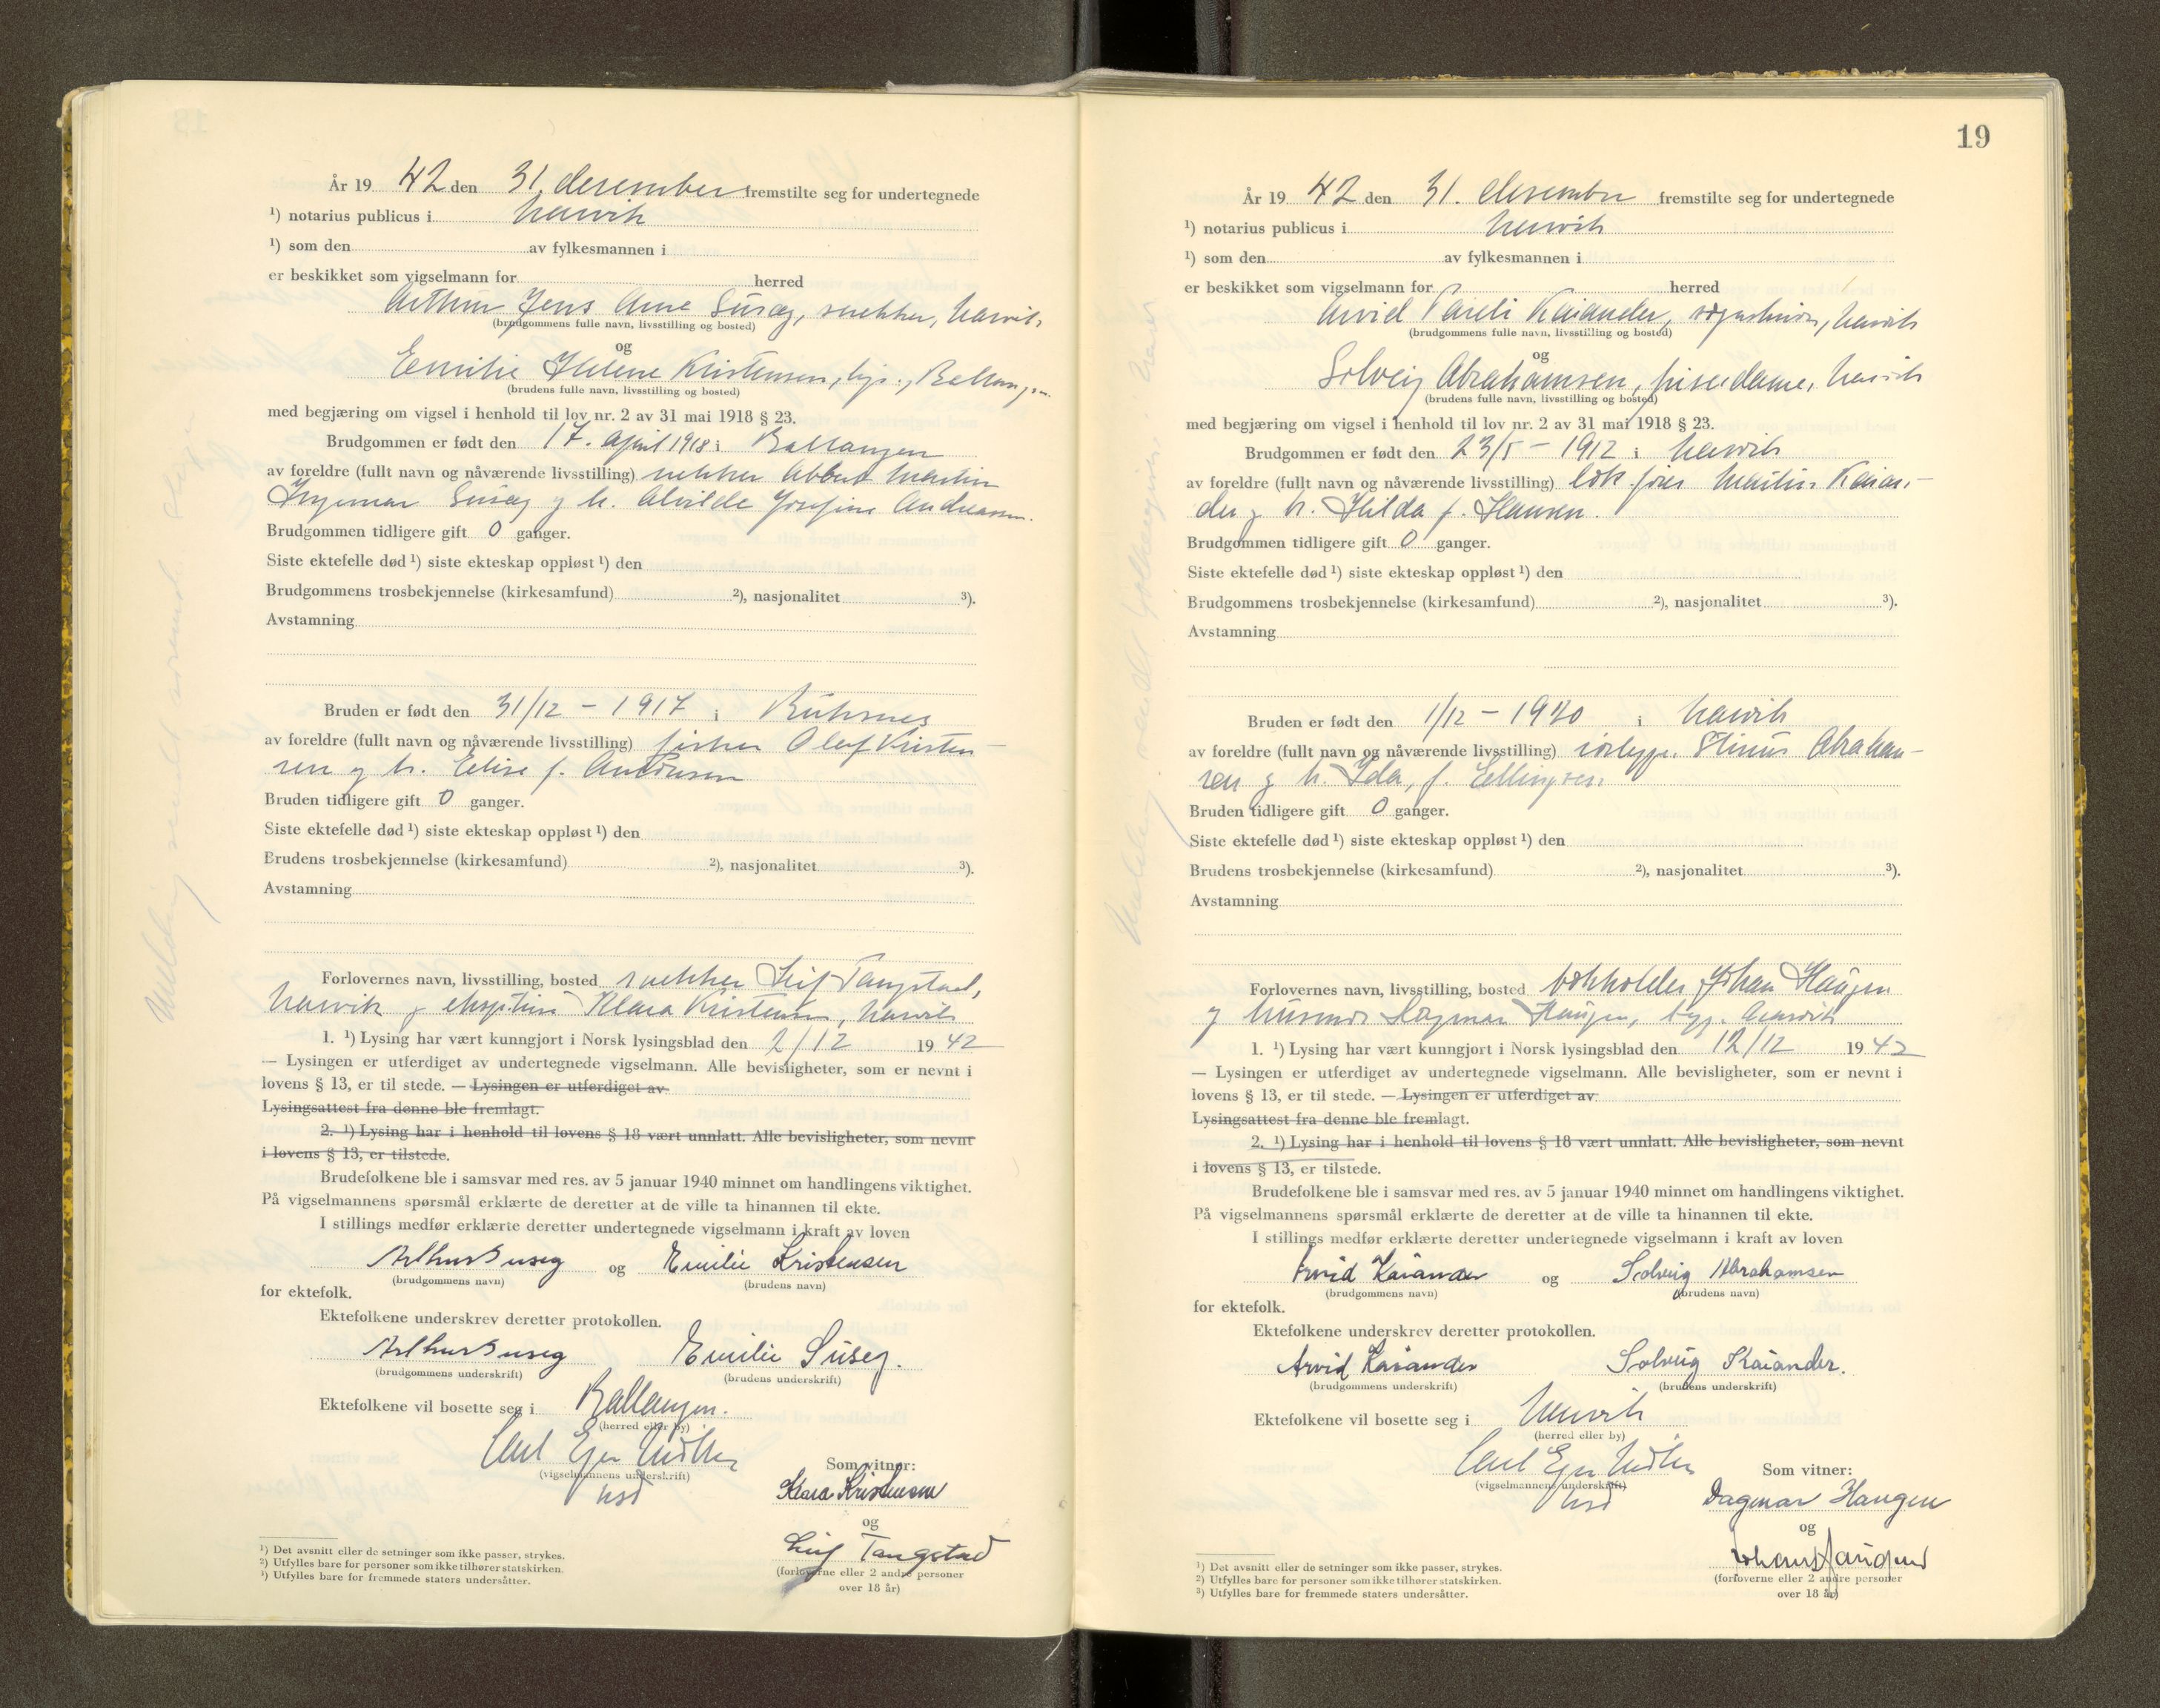 År 19 42 den 31. desember fremstilte seg for undertegnede
¹) notarius publicus i Narvik
¹) som den av fylkesmannen i
er beskikket som vigselmann for herred
Arthur Jens Arne Suseg, snekker, Narvik
(brudgommens fulle navn, livsstilling og bosted)
og
Emilie Helene Kristensen, hjs., Ballangen
(brudens fulle navn, livsstilling og bosted)
med begjæring om vigsel i henhold til lov nr. 2 av 31 mai 1918 § 23.
Brudgommen er født den 17. april 1918 i Ballangen
av foreldre (fullt navn og nåværende livsstilling) snekker Martin
Ingemar Suseg og h. Alvilde Josefine Andreassen.
Brudgommen tidligere gift 0 ganger.
Siste ektefelle død ¹) siste ekteskap oppløst ¹) den
Brudgommens trosbekjennelse (kirkesamfund) ²), nasjonalitet ³).
Avstamning
Bruden er født den 31/12 – 1917 i
av foreldre (fullt navn og nåværende livsstilling) fisker Olaf Kristen-
sen og h. Elise f.
Bruden tidligere gift 0 ganger.
Siste ektefelle død ¹) siste ekteskap oppløst ¹) den
Brudens trosbekjennelse (kirkesamfund) ²), nasjonalitet ³).
Avstamning
Forlovernes navn, livsstilling, bosted snekker Leif Tangstad,
Narvik og Klara Kristensen, Narvik
1. ¹) Lysing har vært kunngjort i Norsk lysingsblad den 2/12 19 42
— Lysingen er utferdiget av undertegnede vigselmann. Alle bevisligheter, som er nevnt i
lovens § 13, er til stede. — Lysingen er utferdiget av
Lysingsattest fra denne ble fremlagt.
2. ¹) Lysing har i henhold til lovens § 18 vært unnlatt. Alle bevisligheter, som nevnt
i lovens § 13, er tilstede.
Brudefolkene ble i samsvar med res. av 5 januar 1940 minnet om handlingens viktighet.
På vigselmannens spørsmål erklærte de deretter at de ville ta hinannen til ekte.
I stillings medfør erklærte deretter undertegnede vigselmann i kraft av loven
Arthur Suseg og Emilie Kristensen
(brudgommens navn) (brudens navn)
for ektefolk.
Ektefolkene underskrev deretter protokollen.
Arthur Suseg Emilie Suseg.
(brudgommens underskrift) (brudens underskrift)
Ektefolkene vil bosette seg i Ballangen.
(herred eller by)
Carl
(vigselmannens underskrift)
Som vitner:
Klara Kristensen
og
Leif Tangstad
(forloverne eller 2 andre personer
over 18 år)
¹) Det avsnitt eller de setninger som ikke passer, strykes.
²) Utfylles bare for personer som ikke tilhører statskirken.
³) Utfylles bare for fremmede staters undersåtter.
19
År 19 42 den 31. desember fremstilte seg for undertegnede
¹) notarius publicus i Narvik
¹) som den av fylkesmannen i
er beskikket som vigselmann for herred
Arvid Pareli Kaiander, Narvik
(brudgommens fulle navn, livsstilling og bosted)
og
Solveig Abrahamsen, frisérdame, Narvik
(brudens fulle navn, livsstilling og bosted)
med begjæring om vigsel i henhold til lov nr. 2 av 31 mai 1918 § 23.
Brudgommen er født den 23/5 – 1912 i Narvik
av foreldre (fullt navn og nåværende livsstilling) lok.fører Martin Kaian-
der og h. Hilda f. Hansen.
Brudgommen tidligere gift 0 ganger.
Siste ektefelle død ¹) siste ekteskap oppløst ¹) den
Brudgommens trosbekjennelse (kirkesamfund) ²), nasjonalitet ³).
Avstamning
Bruden er født den 1/12 – 1920 i Narvik
av foreldre (fullt navn og nåværende livsstilling) rørlegger Abraham-
sen og h. Ida, f. Ellingsen
Bruden tidligere gift 0 ganger.
Siste ektefelle død ¹) siste ekteskap oppløst ¹) den
Brudens trosbekjennelse (kirkesamfund) ²), nasjonalitet ³).
Avstamning
Forlovernes navn, livsstilling, bosted bokholder Johan Haugen
og husmor Dagmar Haugen, begge Narvik
1. ¹) Lysing har vært kunngjort i Norsk lysingsblad den 12/12 19 42
— Lysingen er utferdiget av undertegnede vigselmann. Alle bevisligheter, som er nevnt i
lovens § 13, er til stede. — Lysingen er utferdiget av
Lysingsattest fra denne ble fremlagt.
2. ¹) Lysing har i henhold til lovens § 18 vært unnlatt. Alle bevisligheter, som nevnt
i lovens § 13, er tilstede.
Brudefolkene ble i samsvar med res. av 5 januar 1940 minnet om handlingens viktighet.
På vigselmannens spørsmål erklærte de deretter at de ville ta hinannen til ekte.
I stillings medfør erklærte deretter undertegnede vigselmann i kraft av loven
Arvid Kaiander og Solveig Abrahamsen
(brudgommens navn) (brudens navn)
for ektefolk.
Ektefolkene underskrev deretter protokollen.
Arvid Kaiander Solveig Kaiander.
(brudgommens underskrift) (brudens underskrift)
Ektefolkene vil bosette seg i Narvik
(herred eller by)
Carl
(vigselmannens underskrift)
Som vitner:
Dagmar Haugen
og
Johan Haugen
(forloverne eller 2 andre personer
over 18 år)
¹) Det avsnitt eller de setninger som ikke passer, strykes.
²) Utfylles bare for personer som ikke tilhører statskirken.
³) Utfylles bare for fremmede staters undersåtter.